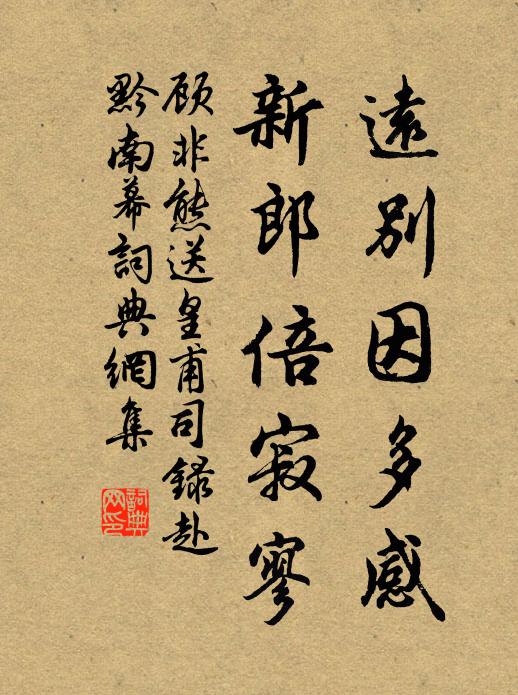 遠別因多感
新郎倍寂寥
顧非熊送皇甫司錄赴
黔南幕詞典網集
詞典网印